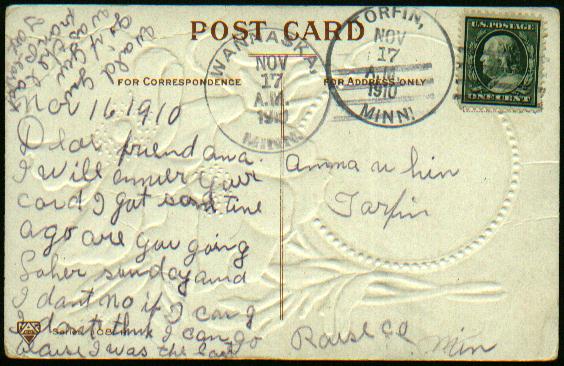 POST CARD
FOR CORRESPONDENCE
FOR ADDRESS ONLY
WANNASKA,
NOV
17
A.M.
1910
MINN.
TORFIN,
NOV
17
A.M.
1910
MINN.
U.S. POSTAGE
ONE CENT
Nov 16 1910
Dear friend ana.
I will anser your
card I got som time
ago are you going
to her sunday and
I dont no if I can g
I dont think I can go
becaise I was the last
wald you
go if you
was the last
I
Anna
Torfin
Rouse co
Min